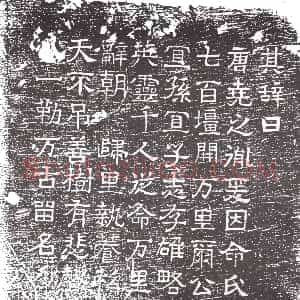 其辞曰
唐堯之胤爰因命氏
七百壇開万里爾公
宜孫宜子志存雄略
英靈千人於命万里
辭朝歸里就養
天不吊善樹有悲
一勒万古留名